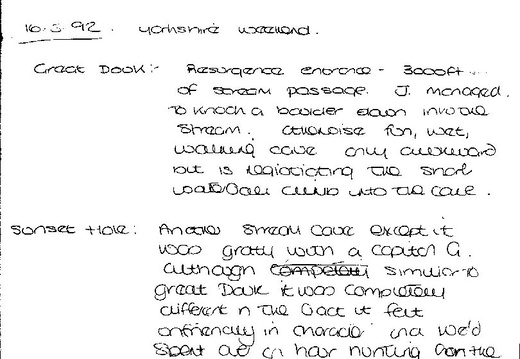 16.5.92. Yorkshire weekend.
Great Douk:- Resurgence entrance - 3000ft ...
of stream passage. J. managed
to knock a boulder down into the
stream. Otherwise fun, wet,
walking cave only awkward
bit is negotiating the short
waterfall climb into the cave.
Sunset Hole: Another stream cave except it
was grotty with a capital G.
Although completely similar to
great Douk it was completely
different in the fact it felt
unfriendly in character and we'd
spent an hour hunting for the